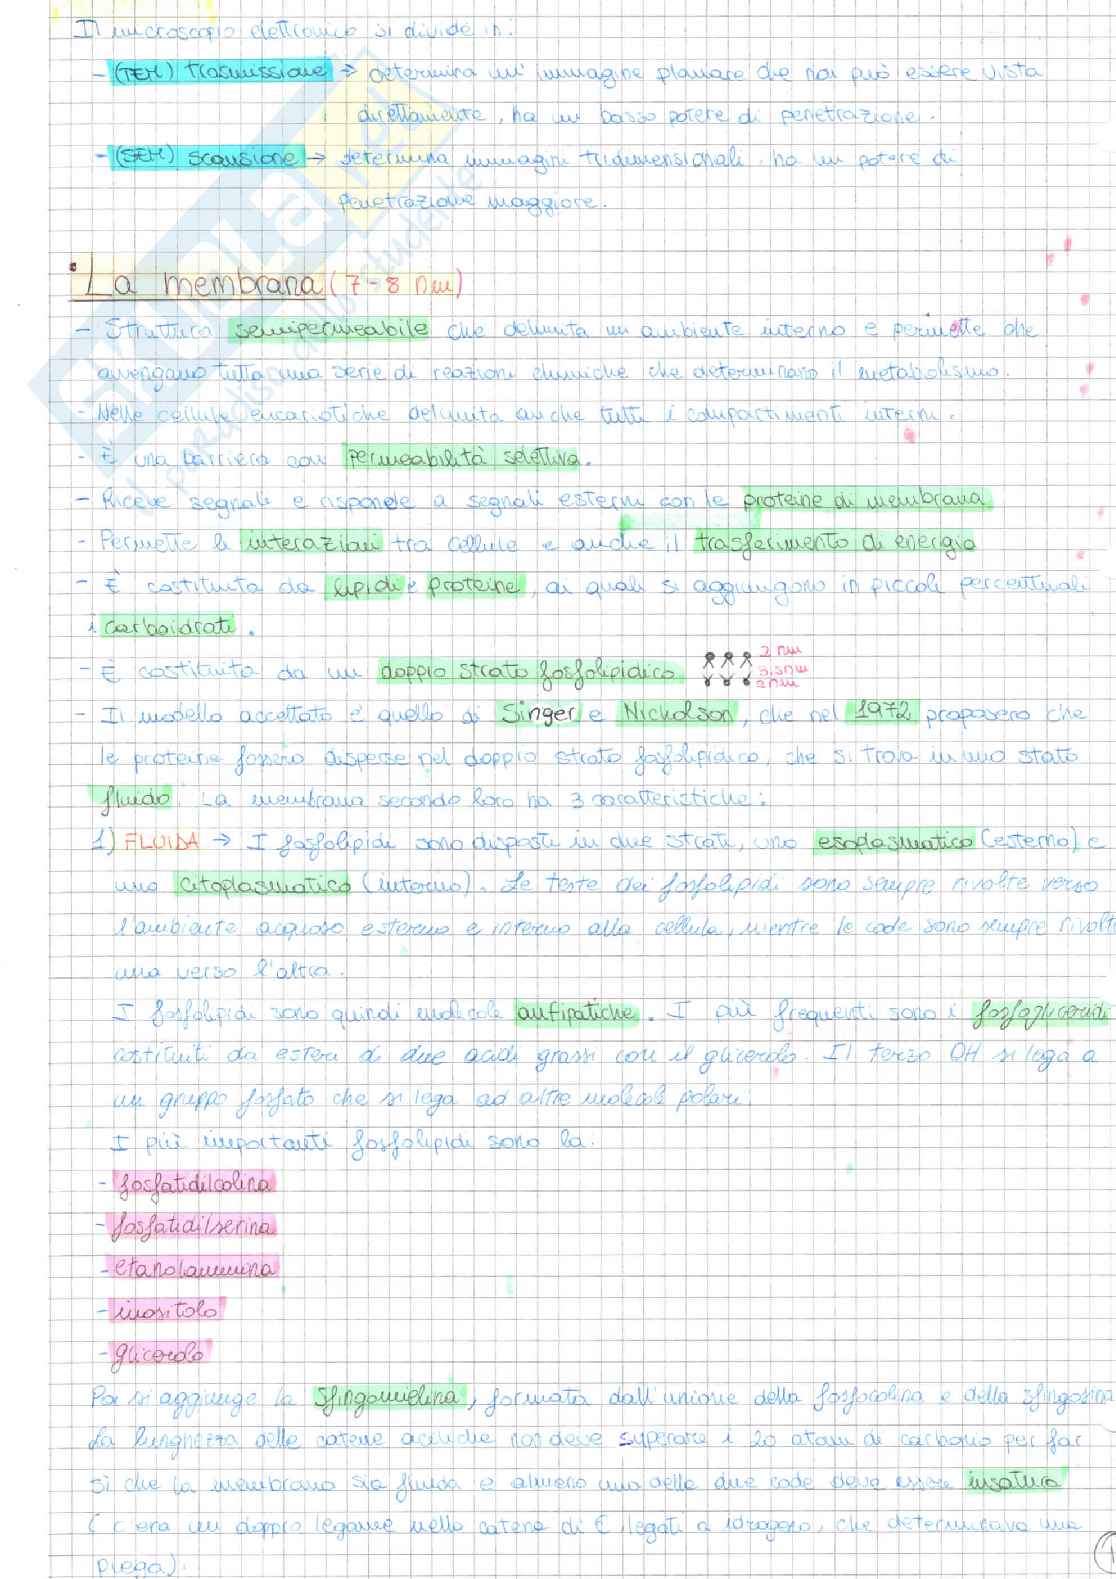 Il microscopio elettronico si divide in:
- (TEM) trasmissione → determina un' immagine planare che non può essere vista
direttamente, ha un basso potere di penetrazione.
- (SEM) scansione → determina immagini tridimensionali, ha un potere di
penetrazione maggiore.
La membrana (7-8 nm)
- Struttura semipermeabile che delimita un ambiente interno e permette che
avvengano tutta una serie di reazioni chimiche che determinano il metabolismo.
- Nelle cellule eucariotiche delimita anche tutti i compartimenti interni.
- È una barriera con permeabilità selettiva.
- Riceve segnali e risponde a segnali esterni con le proteine di membrana
- Permette le interazioni tra cellule e anche il trasferimento di energia
- È costituita da lipidi e proteine, ai quali si aggiungono in piccoli percentuali
i carboidrati.
- È costituita da un doppio strato fosfolipidico 2 nm
3,5nm
2nm
- Il modello accettato è quello di Singer e Nickolson, che nel 1972 proposero che
le proteine fossero disperse nel doppio strato fosfolipidico, che si trova in uno stato
fluido. La membrana secondo loro ha 3 caratteristiche:
1) FLUIDA → I fosfolipidi sono disposti in due strati, uno esoplasmatico (esterno) e
uno citoplasmatico (interno). Le teste dei fosfolipidi sono sempre rivolte verso
l'ambiente acquoso esterno e interno alla cellula, mentre le code sono sempre rivolt
una verso l'altra.
I fosfolipidi sono quindi molecole anfipatiche. I più frequenti sono i fosfogliceridi
costituiti da esteri di due acidi grassi con il glicerolo. Il terzo OH si lega a
un gruppo fosfato che si lega ad altre molecole polari.
I più importanti fosfolipidi sono la:
- fosfatidilcolina
- fosfatidilserina
- etanolammina
- inositolo
- glicerolo
Poi si aggiunge la sfingomielina, formata dall'unione della fosfocolina e della sfingosina
La lunghezza delle catene aciliche non deve superare i 20 atomi di carbonio per far
sì che la membrana sia fluida e almeno una delle due code deve essere insatura
(c'era un doppio legame nelle catene di C legati a idrogeno, che determinava una
piega).
1
Skuola.net